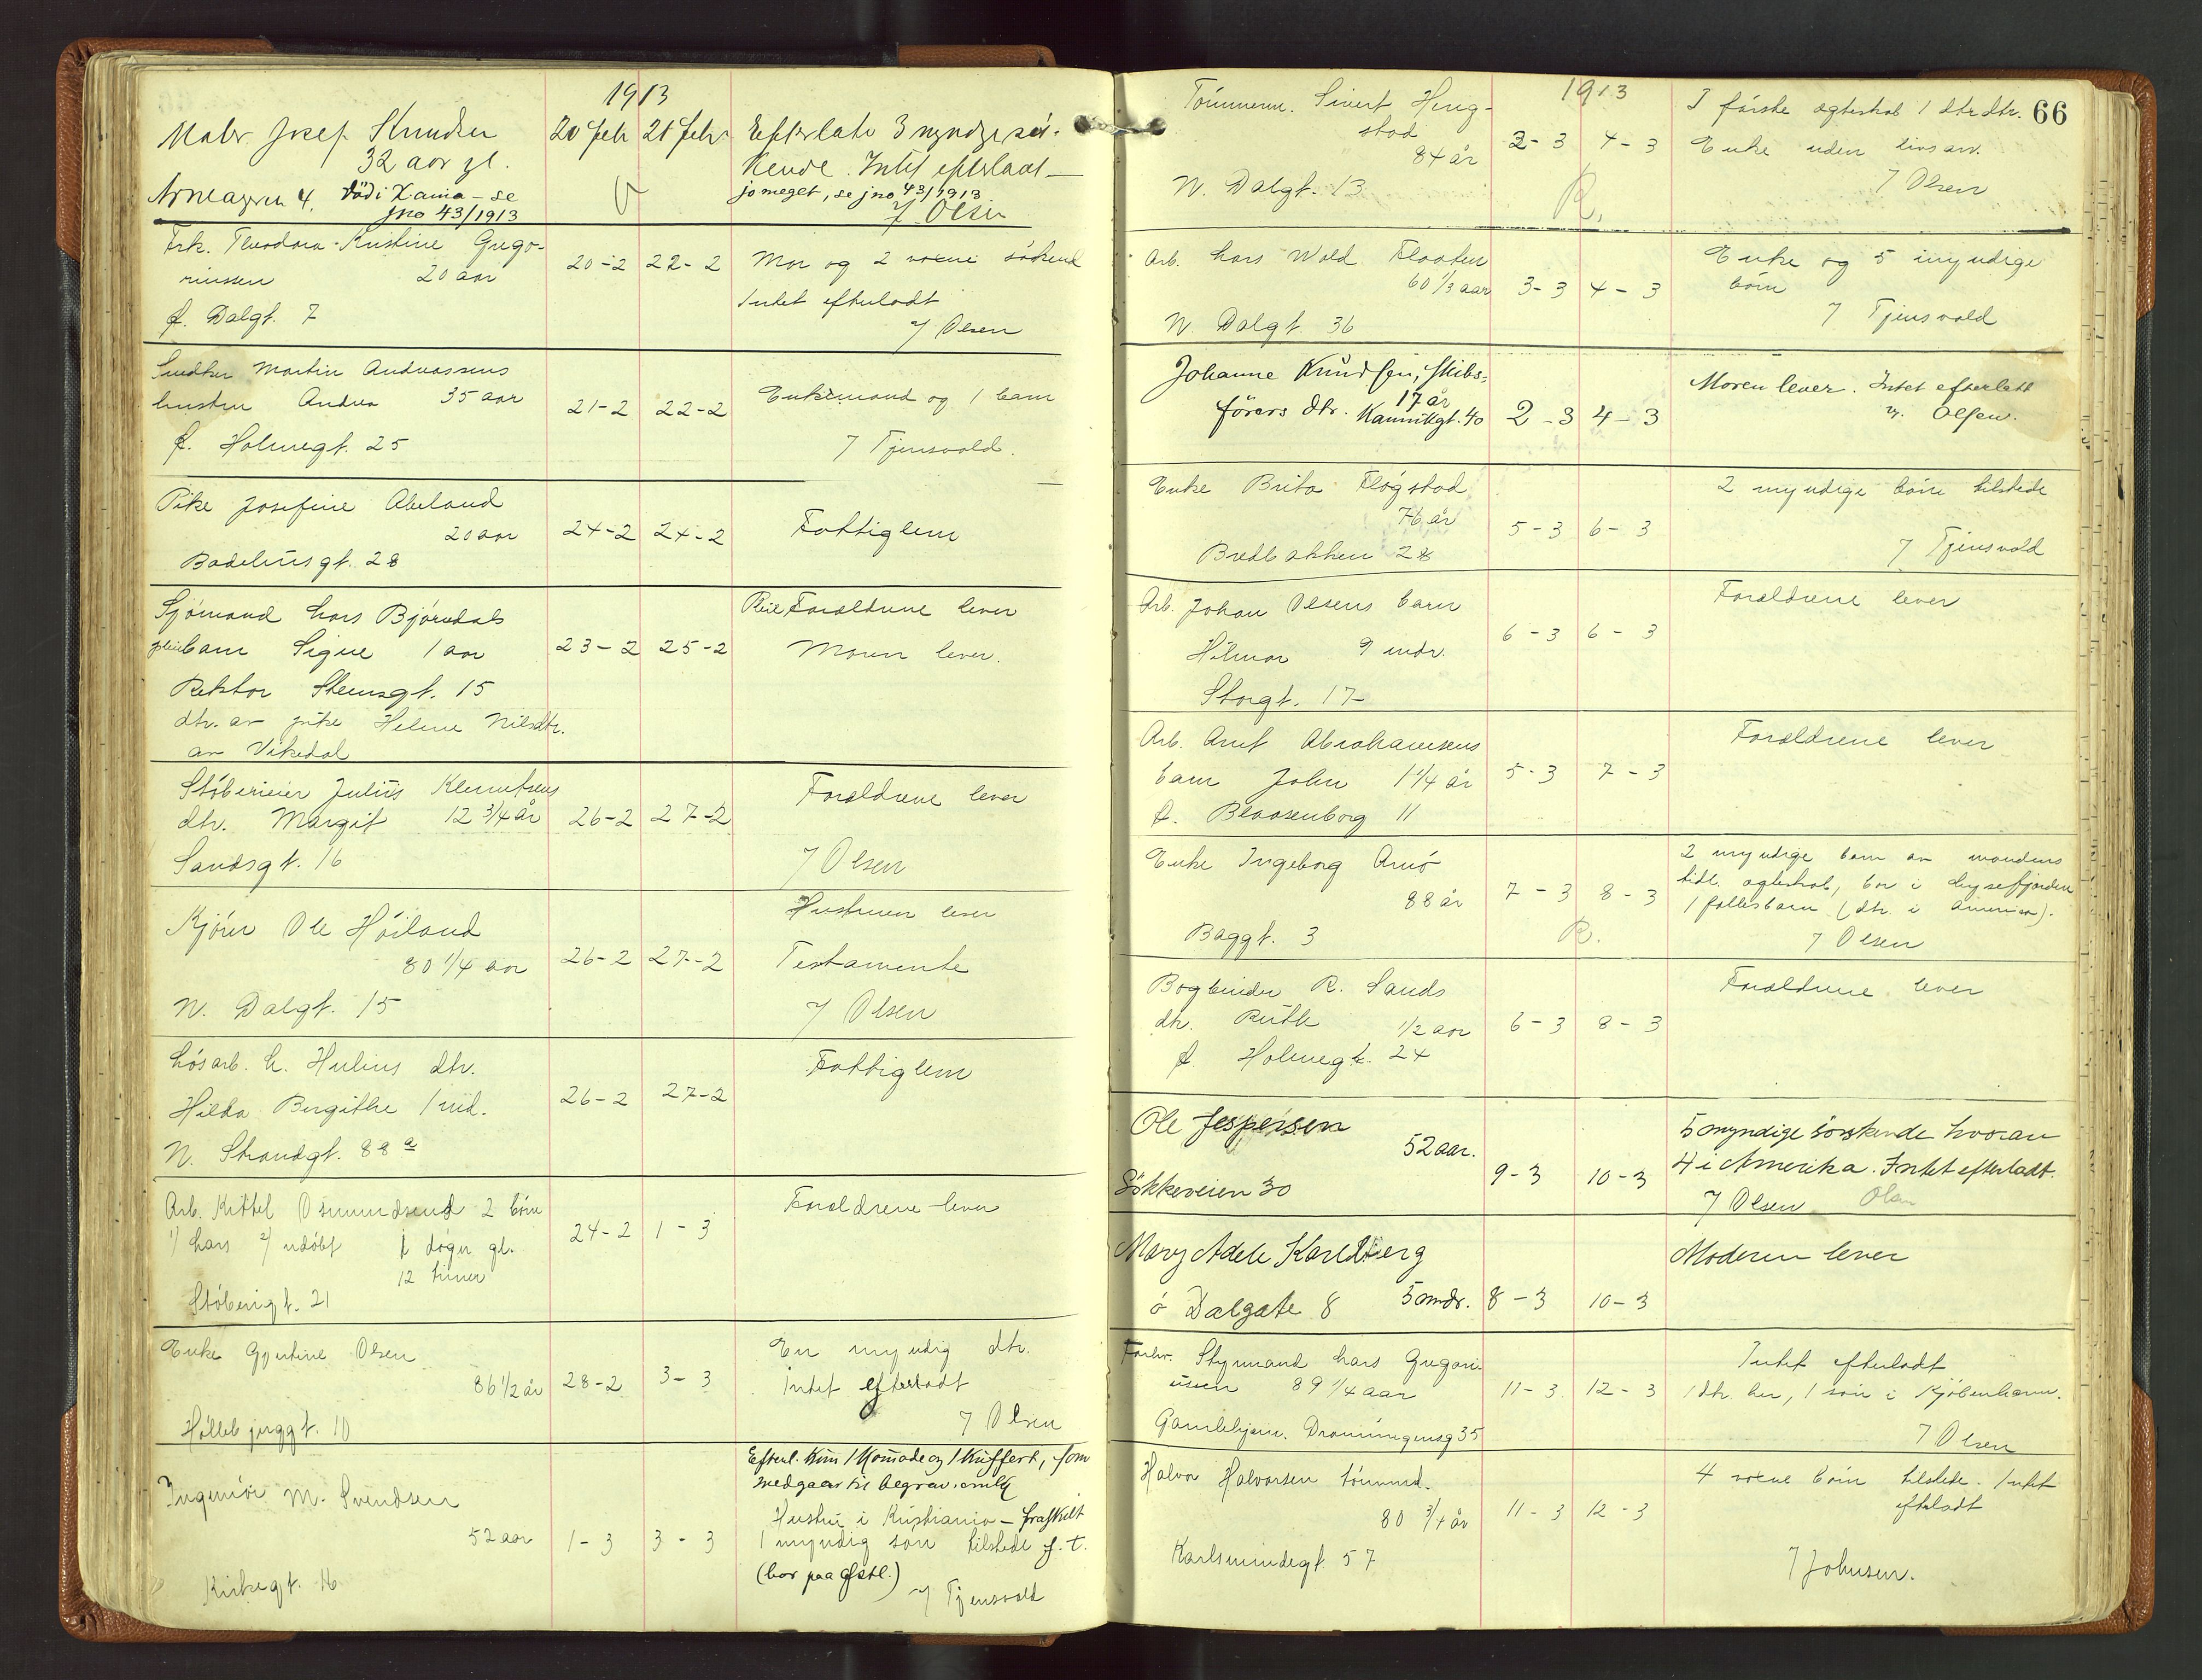 1913
Maler Josef Knudsen
32 aar gl.
20 febr 21 febr
Efterlate 3 myndige søs-
kende. Intet efterlaat —
jo meget, se jno 43/1913
7 Olsen
4. död i Xania – se
jno 43/1913
Frk. Theodora Kristine Grego-
riussen 20 aar
Ö. Dalgt. 7
20-2 22-2
Mor og 2 voxne söskend
Intet efterladt
7 Olsen
Smedker Martin Andreassens
hustru Andrea 35 aar
Ö. Holmegt. 25
21-2 22-2
Enkemand og 1 barn
7 Tjensvold.
Pike Josefine Abeland
20 aar
Badehusgt. 28
24-2 24-2
Fattiglem
Sjömand Lars Björndals
pleiebarn Signe 1 aar
Rektor Steensgt. 15
dtr. av pike Helene Nilsdtr.
av Vikedal
23-2 25-2
Pleie Foraldrene lever
Moren lever.
Stöberieier Julius Klemetsens
dtr. Margit 12 3/4 år
Sandsgt. 16
26-2 27-2
Foraldrene lever
7 Olsen
Kjörer Ole Höiland
80 1/4 aar
N. Dalgt. 15
26-2 27-2
Hustruen lever
Testamente
7 Olsen
Lösarb. L. Hulius dtr.
Hilda Bergithe 1 md.
N. Strandgt. 88 a
26-2 27-2
Fattiglem
Arb. Kittel Osmundsens 2 börn
1/ Lars 2/ udöbt 1 dögn gl.
12 timer
Stöberigt. 21
24-2 1-3
Foraldrene lever
Enke Gjertine Olsen
86 1/2 år
28-2 3-3
En myndig dtr.
Intet efterladt
7 Olsen
Ingeniör M. Svendsen
52 aar
Kirkegt. 16
1-3 3-3
Efterl. kun 1 Komode og 1 Kuffert, som
medgaar til begrav.
Hustru i Kristiania – fraskilt
1 myndig sön tilstede f. t.
(bor paa)
7 Tjensvold
1913
66
Tömmerm. Sivert Heug-
stad
84 år
N. Dalgt. 13
2-3 4-3
R.
I förste ægteskab 1 dtr dtr.
Enke uden livsarv.
7 Olsen
Arb. Lars Wold Flaaten
60 1/3 aar
N. Dalgt. 36
3-3 4-3
Enke og 5 myndige
börn
7 Tjensvold
Johanne Knudsen, Skibs-
förers dtr. 17 år
Kannikgt. 40
2-3 4-3
Moren lever. Intet efterladt
7 Olsen.
Enke Brita Flögstad
76 år
Bredbakken 28
5-3 6-3
2 myndige börn tilstede
7 Tjensvold
Arb. Johan Olsens barn
Hilmar 9 mdr.
Storgt. 17
6-3 6-3
Foraldrene lever
Arb. Arnt Abrahamsens
barn John 1 1/4 år
Ö. Blaasenborg 11
5-3 7-3
Foraldrene lever
Enke Ingeborg Arnö
88 år
Baggt. 3
7-3 8-3
R.
2 myndige barn av mandens
tidl. ægteskab, bor i Lysefjorden
1 fællesbarn (dtr. i Amerika).
7 Olsen
Bogbinder R. Sands
dtr. Ruth 1/2 aar
Ö. Holmegt. 24
6-3 8-3
Foraldrene lever
Ole Jespersen
52 aar.
Sökkeveien 30
9-3 10-3
5 myndige söskende hvorav
4 i Amerika. Intet efterladt.
7 Olsen
Mary Adele Karlberg
ö Dalgate 8 5 mdr.
8-3 10-3
Moderen lever
Forhv. Styrmand Lars Gregori-
ussen 89 1/4 aar
Gamlehjem. Dronningensg 35
11-3 12-3
Intet efterladt
1 dtr. her, 1 sön i Kjöbenhavn.
7 Olsen
Halvor Halvorsen tömmerm.
80 3/4 år
Karlsmindegt. 57
11-3 12-3
4 voxne börn tilstede. Intet
efterladt
7 Johnsen.